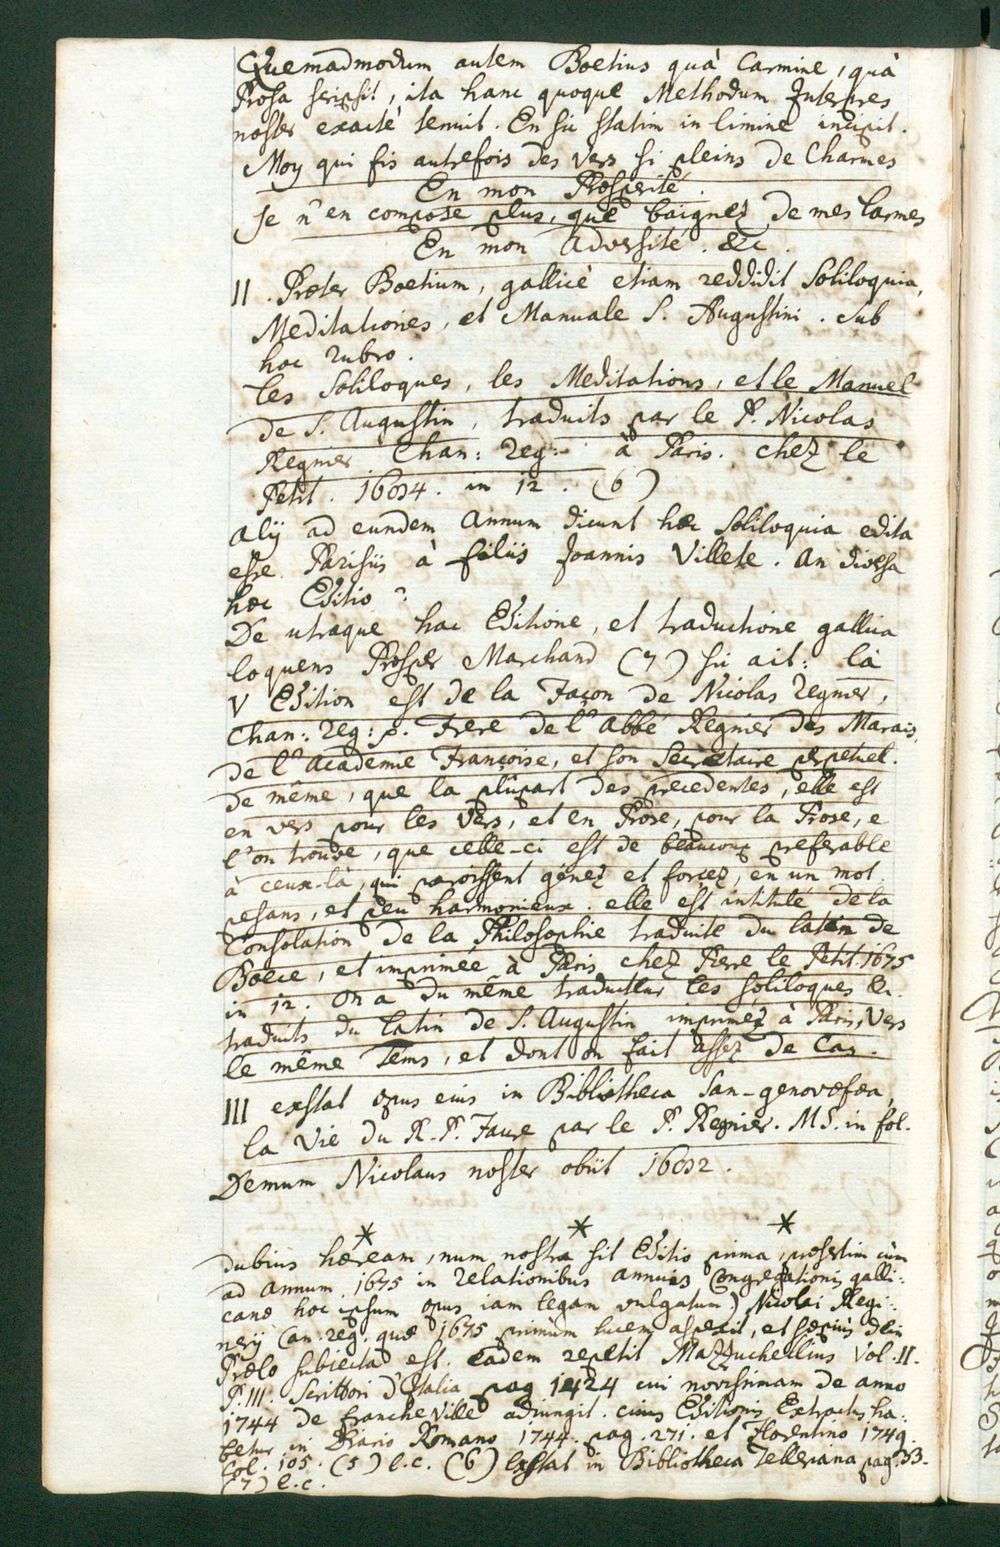 Quemadmodum autem Boetius quà Carmine, quà
Prosa scripsit, ita hanc quoque Methodum Interpres
noster exacté tenuit. En sic statim in limine incipit.
Moy qui fis autrefois des vers si pleins de Charmes
En mon Prosperité.
Je n'en compose plus, que baignez de mes larmes
En mon adversité. &c.
II. Præter Boetium, gallicè etiam reddidit Soliloquia,
Meditationes, et Manuale S. Augustini. sub
hoc rubro.
les Soliloques, les Meditations, et le Manuel
de S. Augustin, traduits par le P. Nicolas
Regnier Chan: reg: à Paris. chez le
Petit. 1694. in 12. (6)
alij ad eundem annum dicunt hæc Soliloquia edita
esse Parisiis à filiis Joannis Villete. an diversa
hæc Editio?
De utraque hac Editione, et traductione gallica
loquens Prosper Marchand (7) sic ait: la
V Edition est de la Façon de Nicolas regnier,
Chan: reg: p. Frere de l'Abbé Regnier des Marais,
de l'Academie Françoise, et son Secretaire perpetuel.
de même, que la plûpart des precedentes, elle est
en vers pour les vers, et en Prose, pour la Prose, e
l'on trouve, que celle-ci est de beaucoup preferable
à ceux-là, qui paroissent génez et forcez, en un mot
pesans, et peu harmonieux. elle est intitulé de la
Consolation de la Philosophie traduite du latin de
Boece, et imprimée à Paris chez Pierre le Petit. 1675
in 12. on a du même traducteur les soliloques &c.
traduits du latin de S. Augustin imprimez à Paris, vers
le même Tems, et dont on fait assez de Cas.
III exstat opus eius in Bibliotheca San-genovefæa,
la vie du R. P. Faure par le P. Regnier. MS. in fol.
Demum Nicolaus noster obiit 1692.
* * *
dubius hæream, num nostra sit Editio prima, præsertim cùm
ad annum 1675 in relationibus annuis Congregationis galli-
canæ hoc ipsum opus iam legam vulgatum) Nicolai Regi-
nerij Can. reg. quæ 1675 primùm lucem aspexit, et sæpius dein
Prælo subiecta est. eadem repetit Mazzuchellius Vol. II.
P. III. Scrittori d'Italia pag 1424 cui novissimam de anno
1744 de francheville adiungit. cuius Editionis Extractus ha-
betur in Diario Romano 1744. pag. 271. et Florentino 1749.
Col. 105. (5) l.c. (6) Exstat in Bibliotheca Telleriana pag. 33.
(7) l.c.